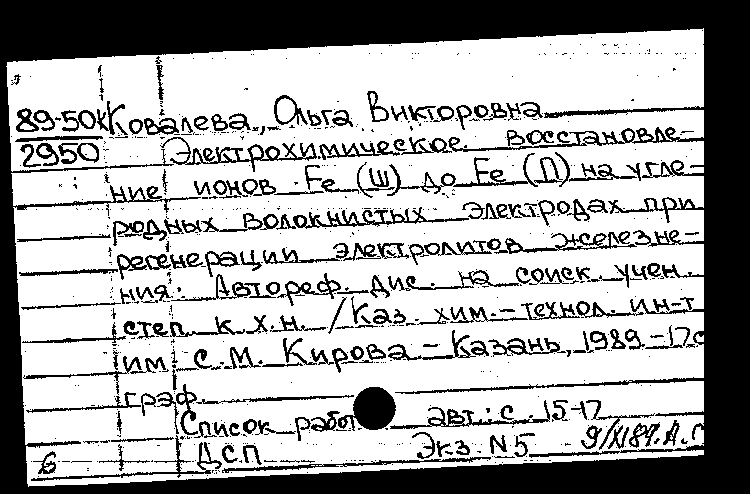 89-50к Ковалева, Ольга Викторовна
2950 Электрохимическое восстановле-
ние ионов Fe (Ш) до Fe (П) на угле-
родных волокнистых электродах при
регенерации электролитов железне-
ния: Автореф. дис. на соиск. учен.
степ. к.х.н. / Каз. хим.-технол. ин-т
им. С.М. Кирова - Казань, 1989 - 17с
граф.
Список работ авт.: с. 15-17
ДСП Экз. N5
6